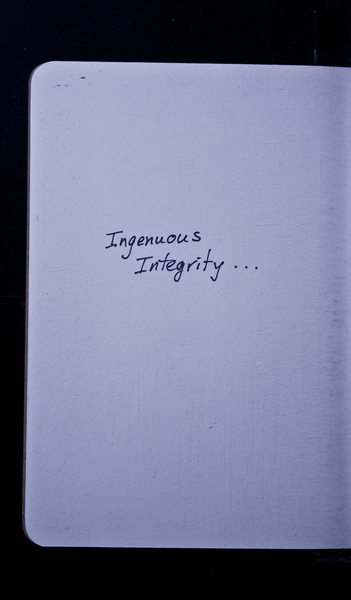 Ingenuous
Integrity ...